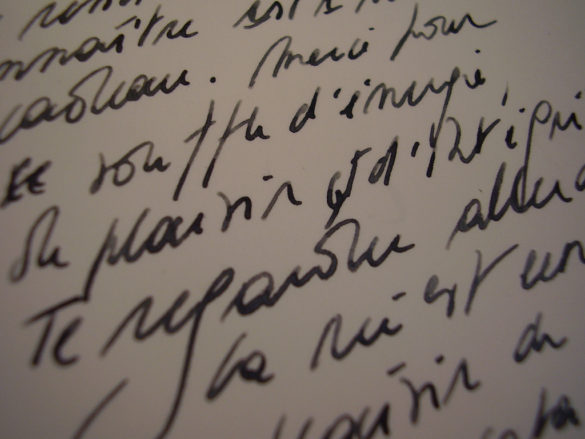 est
nnaître est
cadeau. Merci pour
ce souffle d'énergie,
de plaisir et d'intégri
Te regarder
la vie est un
plaisir de